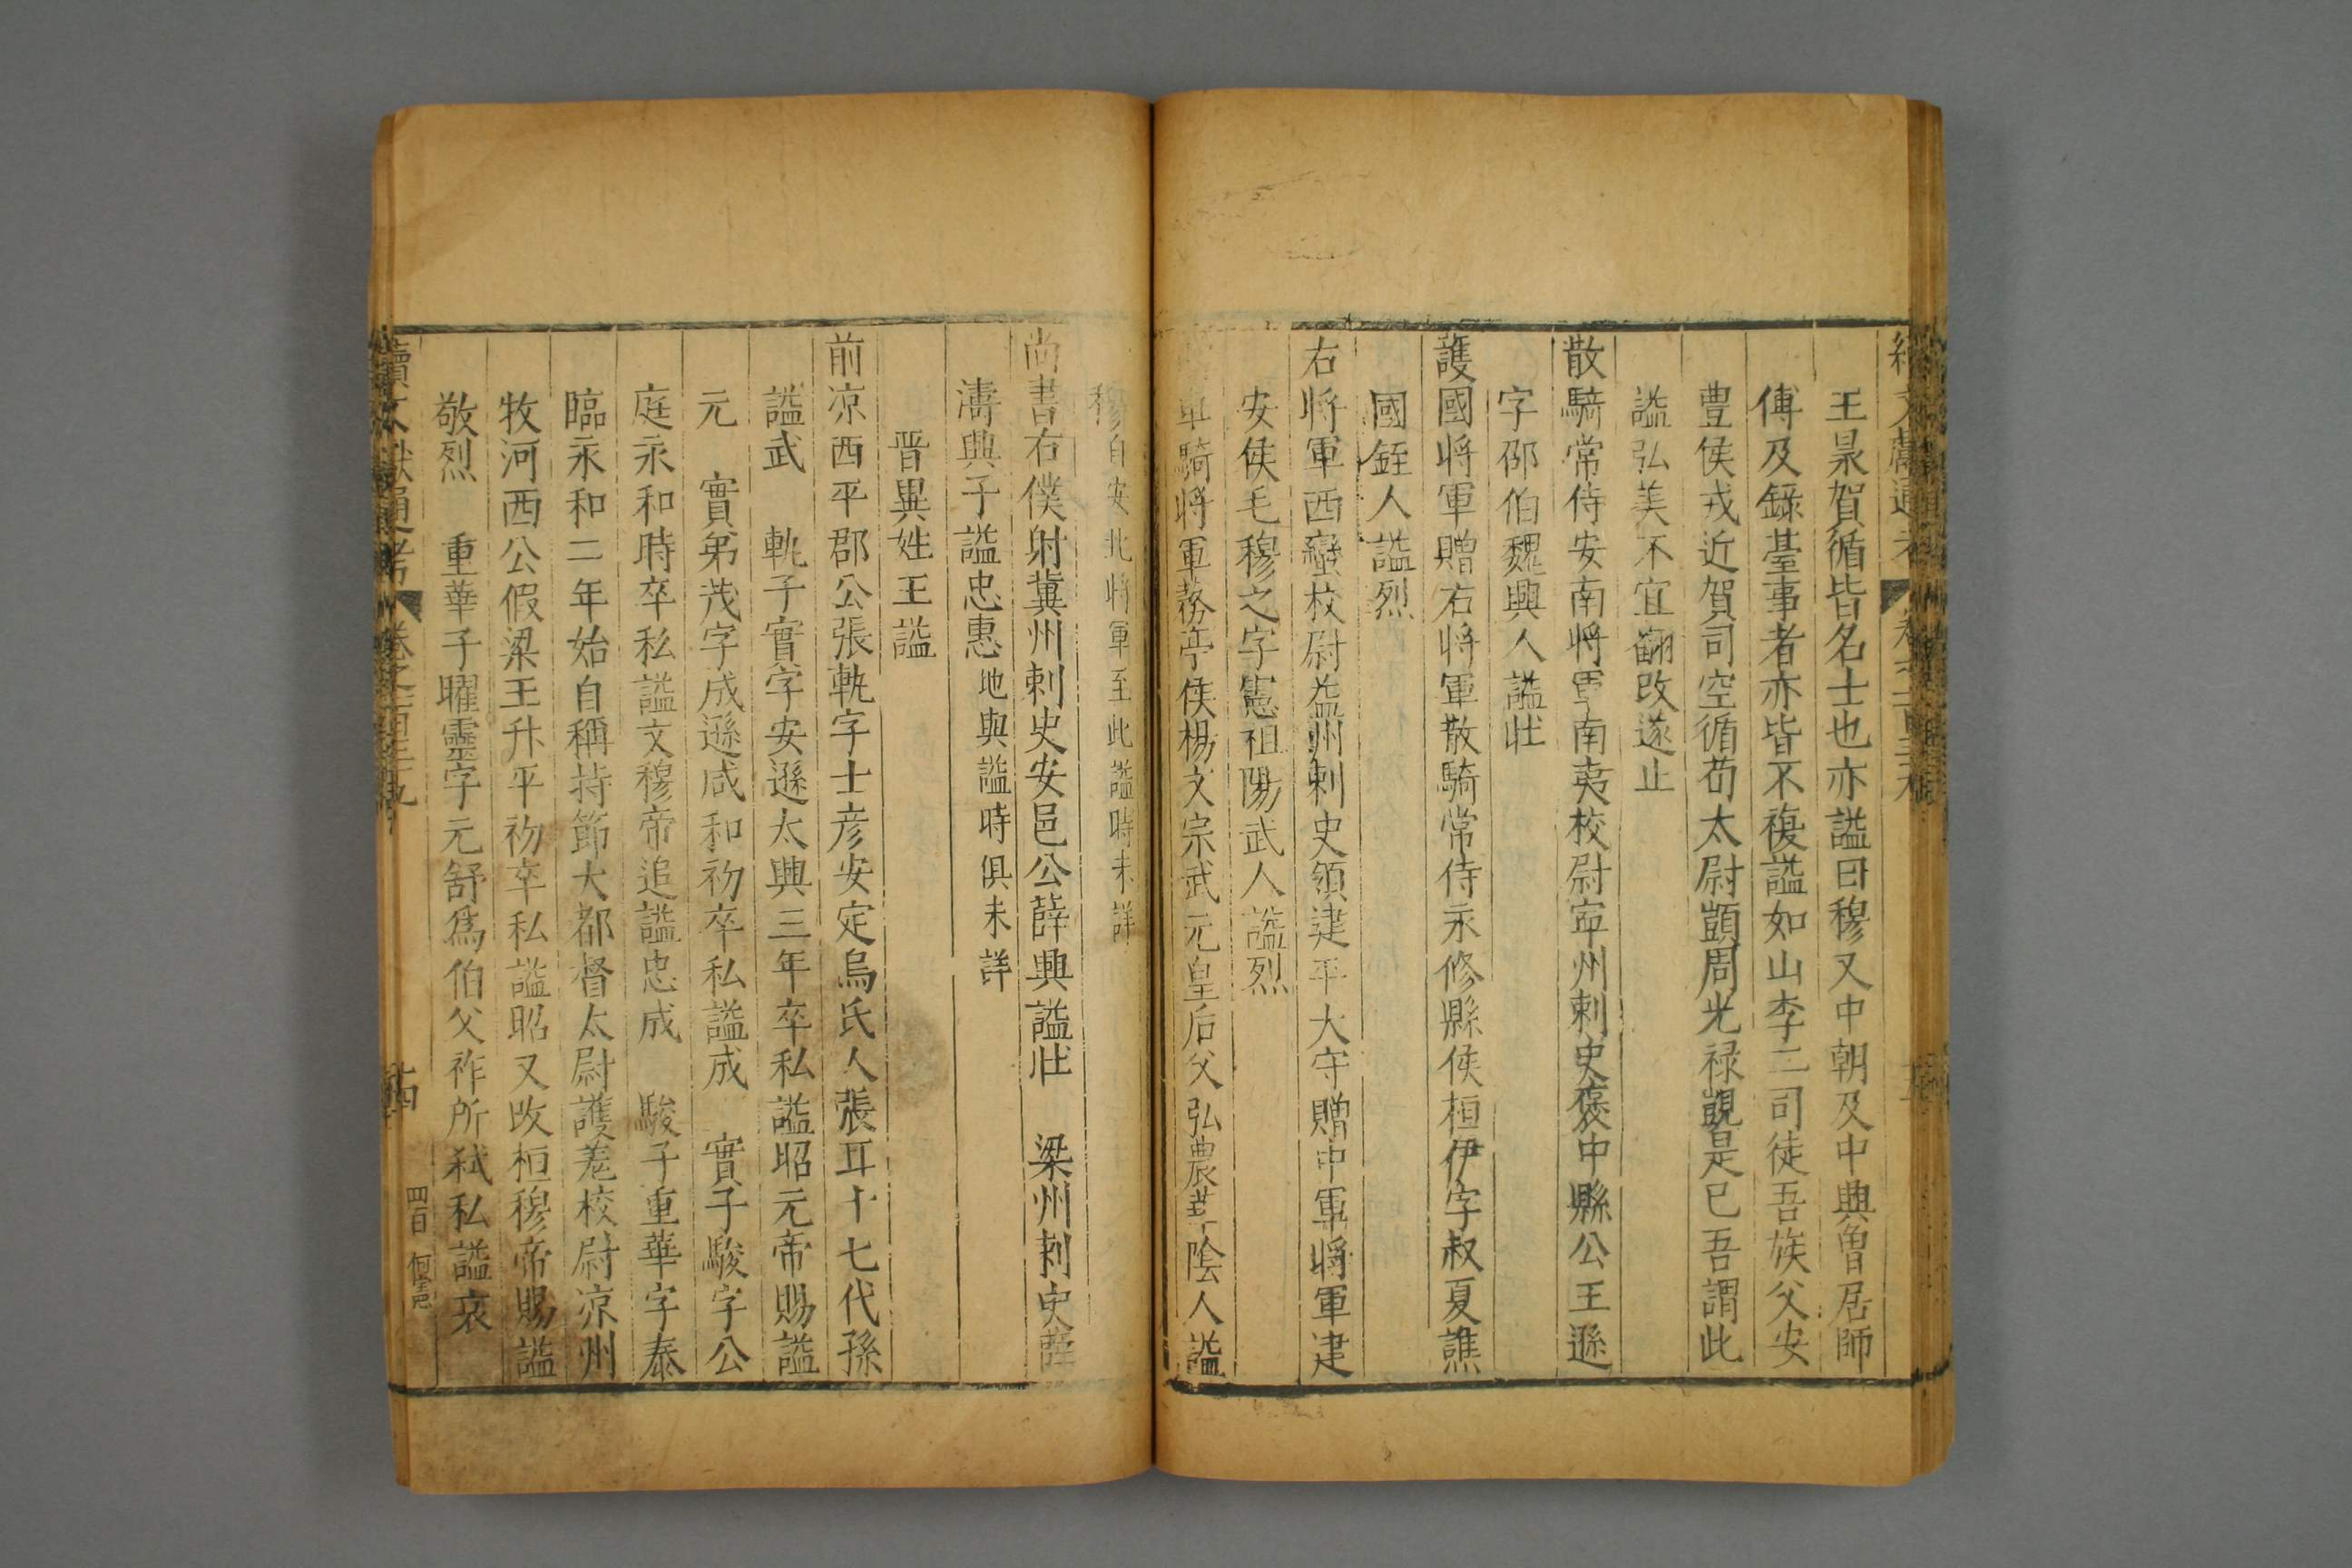 王泉賀循皆名士也亦謚曰穆又中朝及中興曾居師
傅及錄臺事者亦皆不復謚如山李二司徒吾族父安
豊侯戎近賀司空循荀太尉顗周光祿覬是已吾謂此
謚弘美不宜翻改遂止
散騎常侍安南將軍南夷校尉寧州刺史褒中縣公王遜
字邵伯魏興人謚壯
護國將軍贈右將軍散騎常侍永修縣侯桓伊字叔夏譙
國銍人謚烈
右將軍西蠻校尉益州刺史領建平太守贈中軍將軍建
安侯毛穆之字憲祖陽武人謚烈
車騎將軍蓩亭侯楊文宗武元皇后父弘農華陰人謚
穆自安北將軍至此謚時未詳
尚書右僕射冀州刺史安邑公薛興謚壯 梁州刺史薛
濤興子謚忠惠地與謚時俱未詳
晋異姓王謚
前凉西平郡公張軌字士彦安定烏氏人張耳十七代孫
謚武 軌子寔字安遜太興三年卒私謚昭元帝賜謚
元 寔弟茂字成遜咸和初卒私謚成 寔子駿字公
庭永和時卒私謚文穆帝追謚忠成 駿子重華字泰
臨永和二年始自稱持節大都督太尉護羌校尉凉州
牧河西公假梁王升平初卒私謚昭又改桓穆帝賜謚
敬烈 重華子曜靈字元舒爲伯父祚所弒私謚哀
續文獻通考 卷之一百
十四
四百 何憲